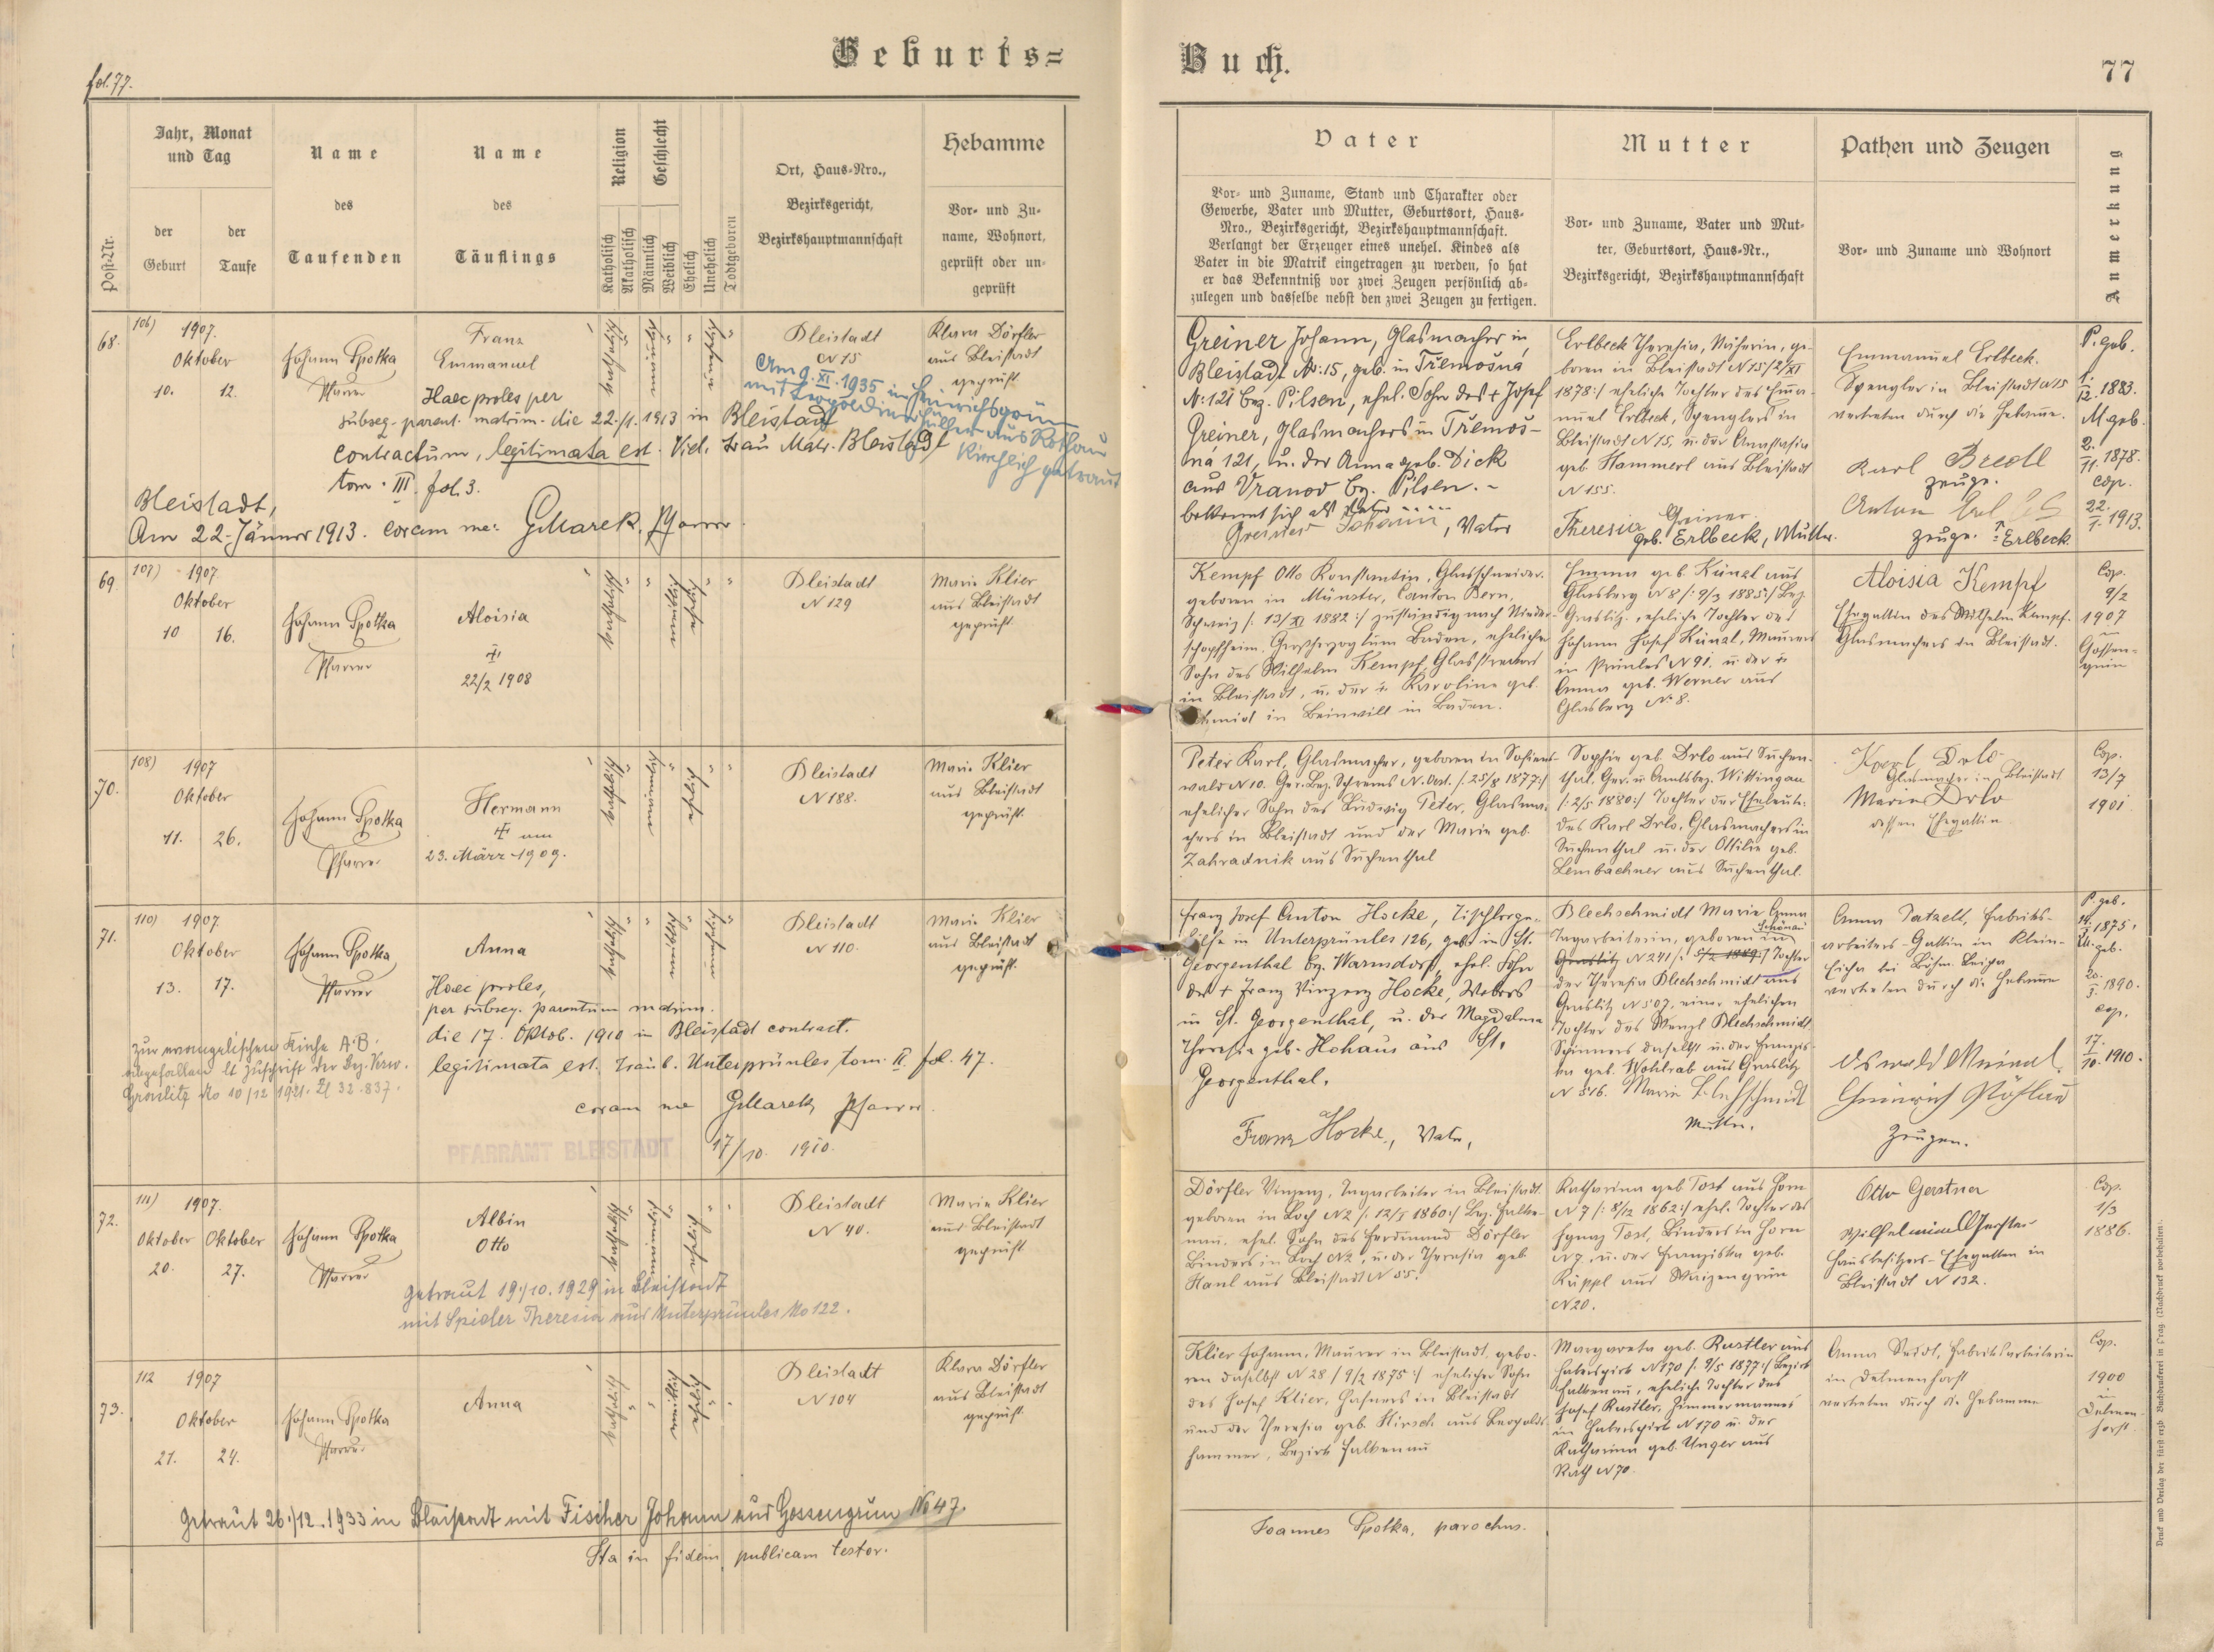 fol. 77.
Geburts=
Buch.
77
Post-Nr.
Jahr, Monat
und Tag
der
Geburt
der
Taufe
Name
des
Taufenden
Name
des
Täuflings
Religion
Katholisch
Akatholisch
Geschlecht
Männlich
Weiblich
Ehelich
Unehelich
Todtgeboren
Ort, Haus-Nro.,
Bezirksgericht,
Bezirkshauptmannschaft
Hebamme
Vor- und Zu-
name, Wohnort,
geprüft oder un-
geprüft
Vater
Vor- und Zuname, Stand und Charakter oder
Gewerbe, Vater und Mutter, Geburtsort, Haus-
Nro., Bezirksgericht, Bezirkshauptmannschaft.
Verlangt der Erzeuger eines unehel. Kindes als
Vater in die Matrik eingetragen zu werden, so hat
er das Bekenntniß vor zwei Zeugen persönlich ab-
zulegen und dasselbe nebst den zwei Zeugen zu fertigen.
Mutter
Vor- und Zuname, Vater und Mut-
ter, Geburtsort, Haus-Nr.,
Bezirksgericht, Bezirkshauptmannschaft
Pathen und Zeugen
Vor- und Zuname und Wohnort
Anmerkung
68.
106)
1907.
Oktober
10. 12.
Johann Spotka
Pfarrer
Franz
Emmanuel
Haec proles per
subseq. parent. matrim. die 22./1. 1913 in Bleistadt
contractum, legitimata est. Vid. Trau Matr. Bleistadt
tom. III. fol. 3.
Bleistadt,
Am 22. Jänner 1913. coram me: GMarek, Pfarrer.
katholisch
Bleistadt
N 15
Am 9. XI. 1935 in Heinrichsgrün
mit Leopoldine Müller aus Rothau
kirchlich getraut
Klara Dörfler
aus Bleistadt
geprüft
Greiner Johann, Glasmacher in
Bleistadt No. 15, geb. in Třemošná
N. 121 bez. Pilsen, ehel. Sohn des + Josef
Greiner, Glasmachers in Třemoš-
ná 121, u. der Anna geb. Dick
aus Vranov bz. Pilsen. -
bekennt sich als Vater
Greiner Johann, Vater
Erlbeck Theresia, Näherin, ge-
boren in Bleistadt N 15 /: 2/XI
1878 :/ eheliche Tochter des Ema-
nuel Erlbeck, Spenglers in
Bleistadt N 15, u. der Anastasia
geb. Hammerl aus Bleistadt
N 155.
Theresia Greiner
geb. Erlbeck, Mutter.
Emmanuel Erlbeck.
Spengler in Bleistadt N 15
vertreten durch die Hebamme.
Karl Bredl
Zeuge.
Anton
Zeuge. Erlbeck
P. geb.
1./12. 1883.
M. geb.
2./11. 1878.
cop.
22./1. 1913.
69.
107)
1907
Oktober
10 16.
Johann Spotka
Pfarrer
Aloisia
22/2 1908
katholisch
Bleistadt
N 129
Marie Klier
aus Bleistadt
geprüft.
Kempf Otto Konstantin, Glasschneider.
geboren in Münster, Canton Bern,
Schweiz /: 13/XI 1882 :/ zuständig nach Nieder-
schopfheim, Großherzogtum Baden, ehelicher
Sohn des Wilhelm Kempf, Glasstreckers
in Bleistadt, u. der Karoline geb.
Schmid in Beinwill in Baden.
Emma geb. Künzl aus
Glasberg N 8 /: 9/3 1885 :/ Bez.
Graslitz, eheliche Tochter des
Johann Josef Künzl, Maurers
in Prünles N 91. u. der
Anna geb. Werner aus
Glasberg N. 8.
Aloisia Kempf
Ehegattin des Wilhelm Kempf
Glasmachers in Bleistadt.
Cop.
9/2
1907
in
Gossen-
grün
70.
108)
1907
Oktober
11. 26.
Johann Spotka
Pfarrer
Hermann
am
23. März 1909.
katholisch
Bleistadt
N 188.
Marie Klier
aus Bleistadt
geprüft.
Peter Karl, Glasmacher, geboren in Sofiens-
wald N 10. Ger. Bez. Schrems N. Oest. /: 25/8 1877 :/
ehelicher Sohn des Ludwig Peter, Glasma-
chers in Bleistadt und der Marie geb.
Zahradnik aus Suchenthal
Sophie geb. Drlo aus Suchen-
thal. Ger. u. Amtsbez. Wittingau
/: 2/5 1880 :/ Tochter der Eheleute
des Karl Drlo, Glasmachers in
Suchenthal u. der Ottilie geb.
Lembachner aus Suchenthal.
Karl Drlo
Glasmacher in Bleistadt
Marie Drlo
dessen Ehegattin
Cop.
13/7
1901
71.
110)
1907.
Oktober
13. 17.
Johann Spotka
Pfarrer
Anna
Haec proles,
per subseq. parentum matrim.
die 17. Oktob. 1910 in Bleistadt contract.
legitimata est. Traub. Unterprünles tom. II. fol. 47.
coram me GMarek, Pfarrer.
17/10. 1910.
PFARRAMT BLEISTADT
Zur evangelischen Kirche A.B.
abgefallen lt. Zuschrift der Bez. Verw.
Graslitz No 10/12 1921. Zl 32.837.
katholisch
Bleistadt
N 110.
Marie Klier
aus Bleistadt
geprüft.
Franz Josef Anton Hocke, Tischlerge-
hilfe in Unterprünles 126, geb. in St.
Georgenthal bz. Warnsdorf, ehel. Sohn
des + Franz Vinzenz Hocke, Webers
in St. Georgenthal, u. der Magdalena
Theresia geb. Hohaus aus St.
Georgenthal.
Franz Hocke, Vater,
Blechschmidt Marie Anna
Tagarbeiterin, geboren in Schönau
Graslitz N 241 /: 5/2 1889 :/ Tochter
der Theresia Blechschmidt aus
Graslitz N 507, einer ehelichen
Tochter des Wenzl Blechschmidt
Spinners daselbst u. der Franzis-
ka geb. Wohlrab aus Graslitz
N 516. Marie Blechschmidt
Mutter.
Anna Tatzelt, Fabriks-
arbeiters-Gattin in Klein-
Eicha bei Böhm. Leipa
vertreten durch die Hebamme
Oswald Meinl
Heinrich
Zeugen.
P. geb.
1875.
M. geb.
20./3. 1890.
cop.
17./10. 1910.
72.
111)
1907.
Oktober Oktober
20. 27.
Johann Spotka
Pfarrer
Albin
Otto
getraut 19./10. 1929 in Bleistadt
mit Spieler Theresia aus Unterprünles No 122.
katholisch
Bleistadt
N 40.
Marie Klier
aus Bleistadt
geprüft
Dörfler Vinzenz, Tagarbeiter in Bleistadt.
geboren in Loch N 2 /: 12/5 1860 :/ Bez. Falke-
nau, ehel. Sohn des Ferdinand Dörfler
Binders in Loch N 2, u. der Theresia geb.
Hanl aus Bleistadt N 55.
Katharina geb. Tost aus Horn
N 7 /: 8/12 1862 :/ ehel. Tochter des
Ignaz Tost, Binders in Horn
N 7. u. der Franziska geb.
Küppl aus Waizengrün
N 20.
Otto Gerstner
Wilhelmine Gerstner
Hausbesitzers-Ehegatten in
Bleistadt N 132.
Cop.
1/3
1886.
73.
112
1907
Oktober
21. 24.
Johann Spotka
Pfarrer
Anna
katholisch
Bleistadt
N 104
Klara Dörfler
aus Bleistadt
geprüft.
Klier Johann, Maurer in Bleistadt, gebo-
ren daselbst N 28 /: 9/2 1875 :/ ehelicher Sohn
des Josef Klier, Hafners in Bleistadt
und der Theresia geb. Hirsch aus Leopolds-
hammer, Bezirk Falkenau
Margareta geb. Rustler aus
Haberspirk N 170 /: 9/5 1877 :/ Bezirk
Falkenau, eheliche Tochter des
Josef Rustler, Zimmermannes
in Haberspirk N 170 u. der
Katharina geb. Unger aus
Kath N 70.
Anna Seidl, Fabriksarbeiterin
in Delmenhorst
vertreten durch die Hebamme
Cop.
1900
in
Delmen-
horst.
getraut 26./12. 1933 in Bleistadt mit Fischer Johann aus Gossengrün No 47.
Ita in fidem publicam testor.
Joannes Spotka, parochus.
Druck und Verlag der fürst-erzb. Buchdruckerei in Prag. (Nachdruck vorbehalten).